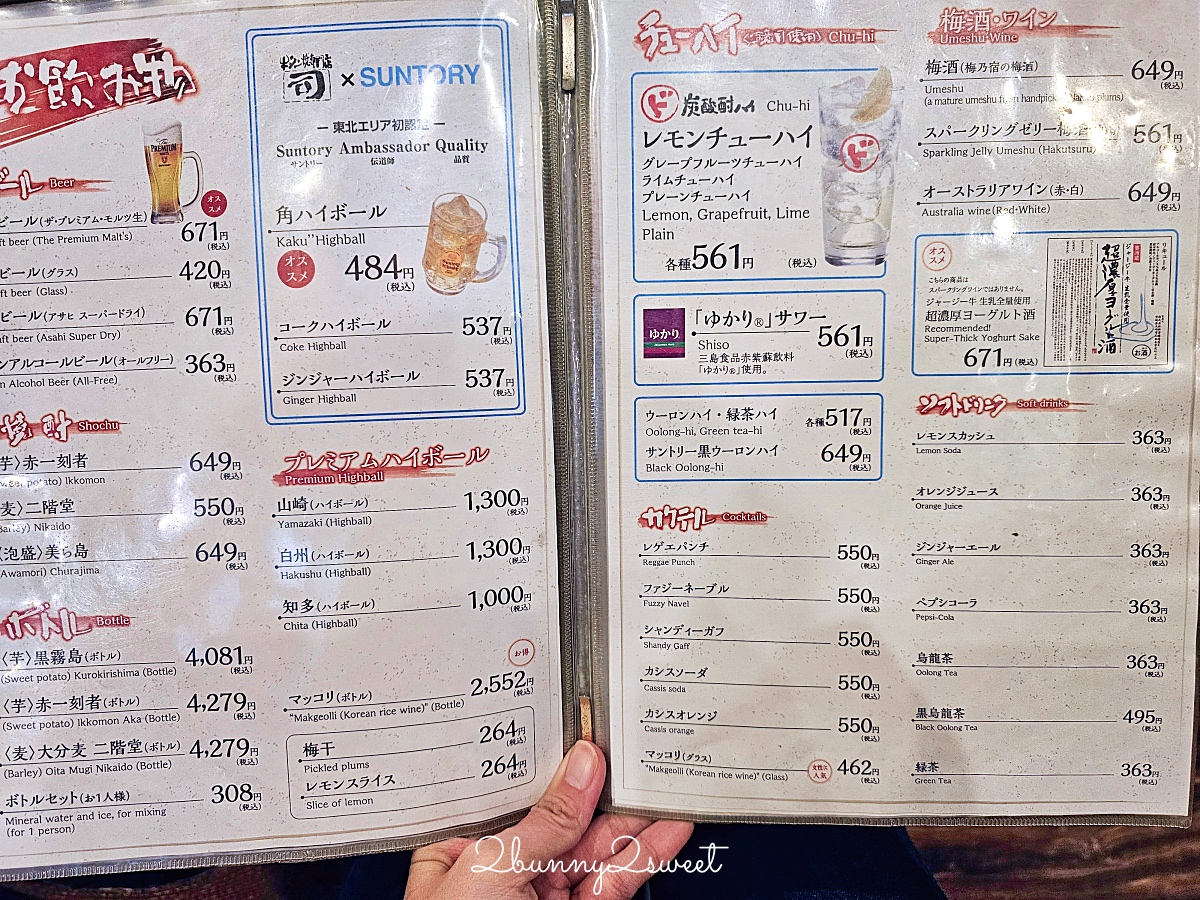 お飲みもの
ビール Beer
ビール(ザ・プレミアム・モルツ生)
ft beer (The Premium Malt's)
オススメ
671円
(税込)
ビール(グラス)
ft beer (Glass)
420円
(税込)
ビール(アサヒ スーパードライ)
ft beer (Asahi Super Dry)
671円
(税込)
ンアルコールビール(オールフリー)
n Alcohol Beer (All-Free)
363円
(税込)
焼酎 Shochu
芋〉赤一刻者
weet potato) Ikkomon
649円
(税込)
麦〉二階堂
Barley) Nikaido
550円
(税込)
〈泡盛〉美ら島
(Awamori) Churajima
649円
(税込)
ボトル Bottle
〈芋〉黒霧島(ボトル)
(Sweet potato) Kurokirishima (Bottle)
4,081円
(税込)
〈芋〉赤一刻者(ボトル)
(Sweet potato) Ikkomon Aka (Bottle)
4,279円
(税込)
〈麦〉大分麦 二階堂(ボトル)
(Barley) Oita Mugi Nikaido (Bottle)
4,279円
(税込)
ボトルセット(お1人様)
Mineral water and ice, for mixing
(for 1 person)
308円
(税込)
司 × SUNTORY
― 東北エリア初認定 ―
Suntory Ambassador Quality
サントリー 伝道師 品質
角ハイボール
Kaku"Highball
オススメ
484円
(税込)
コークハイボール
Coke Highball
537円
(税込)
ジンジャーハイボール
Ginger Highball
537円
(税込)
プレミアムハイボール
Premium Highball
山崎(ハイボール)
Yamazaki (Highball)
1,300円
(税込)
白州(ハイボール)
Hakushu (Highball)
1,300円
(税込)
知多(ハイボール)
Chita (Highball)
1,000円
(税込)
お得
マッコリ(ボトル)
"Makgeolli (Korean rice wine)" (Bottle)
2,552円
(税込)
梅干
Pickled plums
264円
(税込)
レモンスライス
Slice of lemon
264円
(税込)
チューハイ Chu-hi
ド 炭酸酎ハイ Chu-hi
レモンチューハイ
グレープフルーツチューハイ
ライムチューハイ
プレーンチューハイ
Lemon, Grapefruit, Lime
Plain
各種561円 (税込)
ド
ゆかり
「ゆかり®」サワー
Shiso
三島食品赤紫蘇飲料
「ゆかり®」使用。
561円
(税込)
ウーロンハイ・緑茶ハイ
Oolong-hi, Green tea-hi
各種517円
(税込)
サントリー黒ウーロンハイ
Black Oolong-hi
649円
(税込)
カクテル Cocktails
レゲエパンチ
Reggae Punch
550円
(税込)
ファジーネーブル
Fuzzy Navel
550円
(税込)
シャンディーガフ
Shandy Gaff
550円
(税込)
カシスソーダ
Cassis soda
550円
(税込)
カシスオレンジ
Cassis orange
550円
(税込)
マッコリ(グラス)
"Makgeolli (Korean rice wine)" (Glass)
女性に人気
462円
(税込)
梅酒・ワイン
Umeshu·Wine
梅酒(梅乃宿の梅酒)
Umeshu
(a mature umeshu from handpicked plums)
649円
(税込)
スパークリングゼリー梅酒
Sparkling Jelly Umeshu (Hakutsuru)
561円
(税込)
オーストラリアワイン(赤・白)
Australia wine (Red·White)
649円
(税込)
オススメ
こちらの商品は
スパークリングワインではありません。
ジャージー牛 生乳全量使用
超濃厚ヨーグルト酒
Recommended!
Super-Thick Yoghurt Sake
671円 (税込)
リキュール
ジャージー牛 生乳全量使用
超濃厚ヨーグルト酒
お酒
ソフトドリンク Soft drinks
レモンスカッシュ
Lemon Soda
363円
(税込)
オレンジジュース
Orange Juice
363円
(税込)
ジンジャーエール
Ginger Ale
363円
(税込)
ペプシコーラ
Pepsi-Cola
363円
(税込)
烏龍茶
Oolong Tea
363円
(税込)
黒烏龍茶
Black Oolong Tea
495円
(税込)
緑茶
Green Tea
363円
(税込)
2bunny2sweet